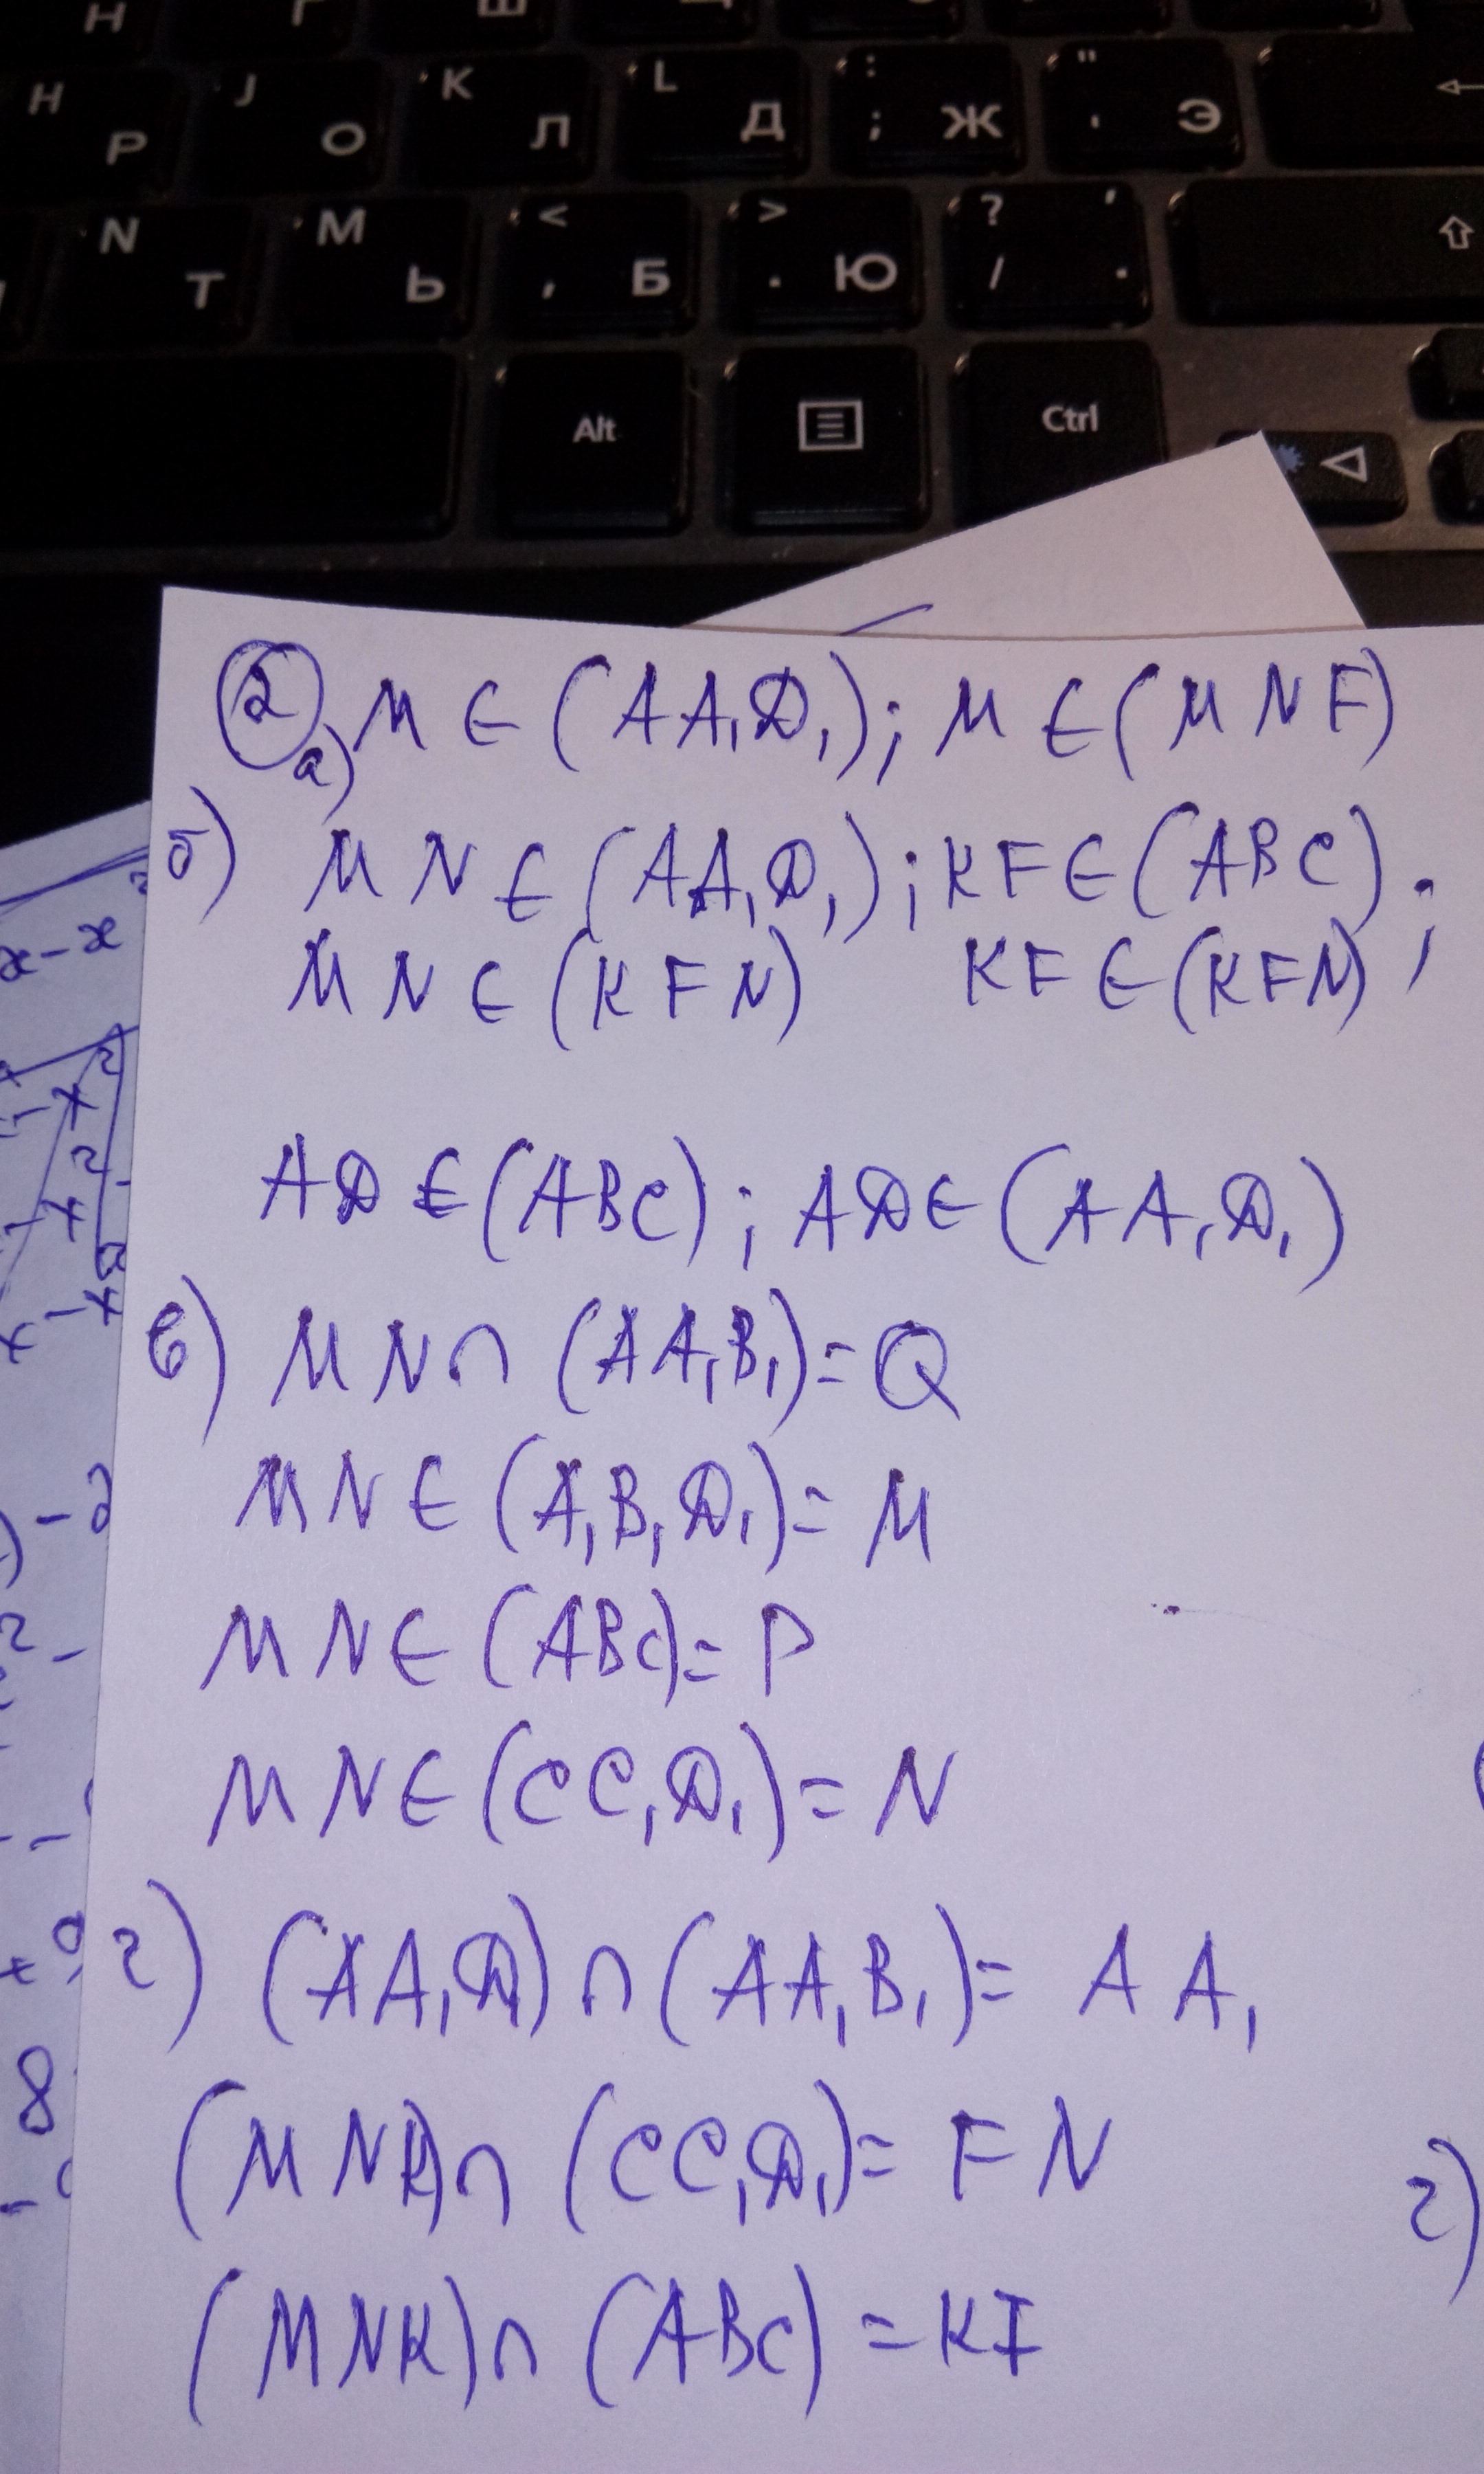 Н Г Ш Щ
H Р J О K Л L Д : ; Ж " ' Э ←
N Т M Ь < , Б > . Ю ? / ' .
Alt Ctrl
② а) M ∈ (AA₁D₁); M ∈ (MNF)
б) MN ∈ (AA₁D₁); KF ∈ (ABC);
x-x²
MN ∈ (KFN) KF ∈ (KFN);
AD ∈ (ABC); AD ∈ (AA₁D₁)
в) MN ∩ (AA₁B₁) = Q
MN ∈ (A₁B₁D₁) = M
-2
MN ∈ (ABC) = P
MN ∈ (CC₁D₁) = N
г) (AA₁D) ∩ (AA₁B₁) = AA₁
8
(MNK) ∩ (CC₁D₁) = FN
г)
(MNK) ∩ (ABC) = KF